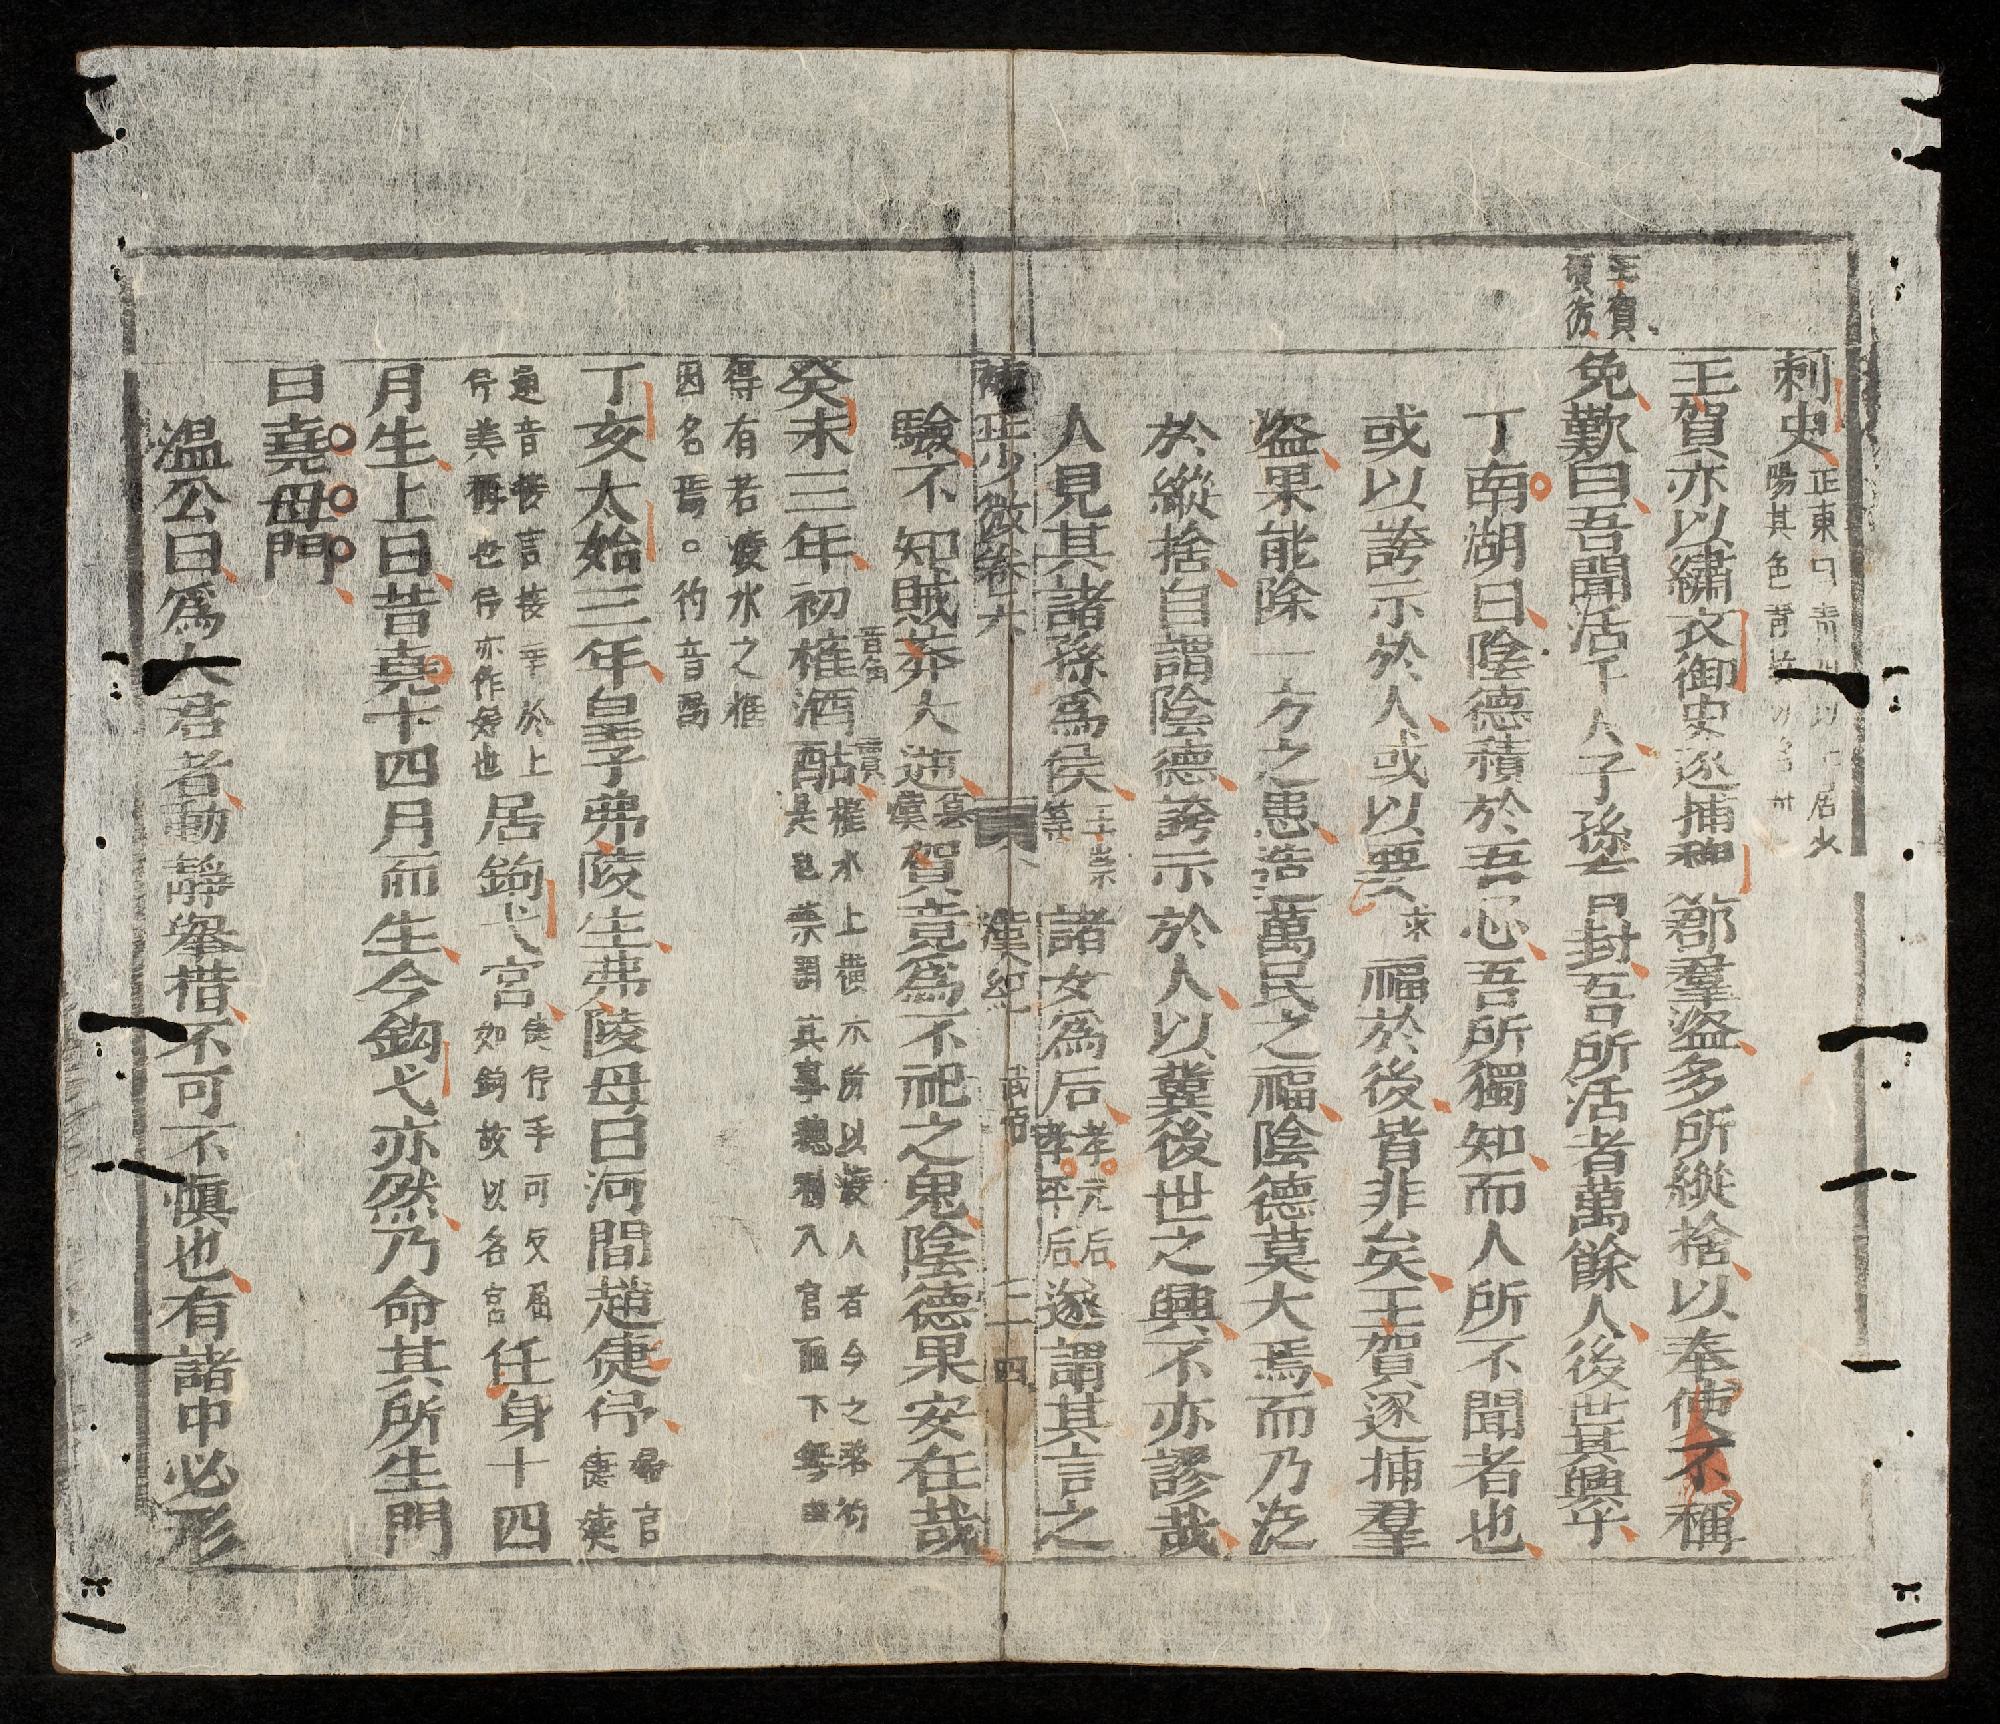 王賀
積彷
刺史正東曰青州
陽其色青
王賀亦以繡衣御史逐捕魏郡羣盗多所縱捨以奉使不稱
免歎曰吾聞活千人子孫有封吾所活者萬餘人後世其興乎
丁南湖曰陰德積於吾心吾所獨知而人所不聞者也
或以誇示於人或以要求福於後皆非矣王賀逐捕羣
盗果能除一方之患造萬民之福陰德莫大焉而乃泛
於縱捨自謂陰德誇示於人以冀後世之興不亦謬哉
人見其諸孫為侯王崇等諸女為后孝元后孝平后遂謂其言之
補正少微卷六 漢紀 武帝 二十四
驗不知賊莽大逆篡漢賀竟為不祀之鬼陰德果安在哉
癸未三年初榷音角酒酤賣榷水上橫木所以渡人者今之
其事總利入官而下無由
得有若渡水之榷
因名焉。彴音酌
丁亥太始三年皇子弗陵生弗陵母曰河間趙倢伃婦官倢
通音接言接幸於上
伃美稱也伃亦作妤也居鉤弋宮倢伃手可反屈如鉤故以名宮任身十四
月生上曰昔堯十四月而生今鉤弋亦然乃命其所生門
曰堯母門
溫公曰為人君者動靜舉措不可不慎也有諸中必形